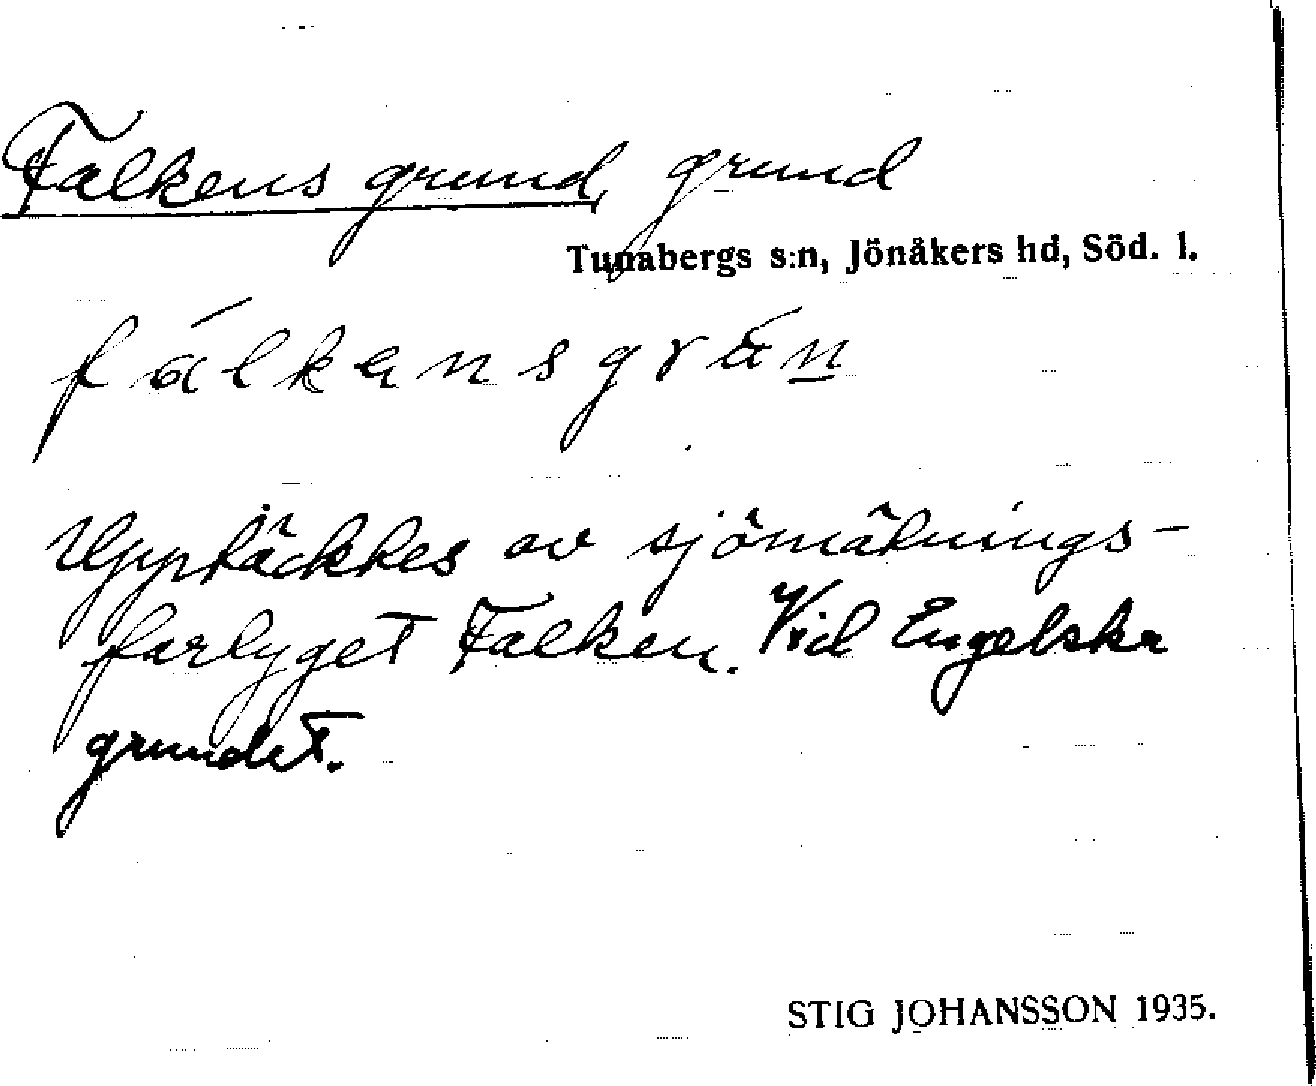 Falkens grund, grund
Tunabergs s:n, Jönåkers hd, Söd. l.
fálkansgrán
Upptäcktes av sjömätnings-
fartyget Falken. Vid Engelska
grundet.
STIG JOHANSSON 1935.